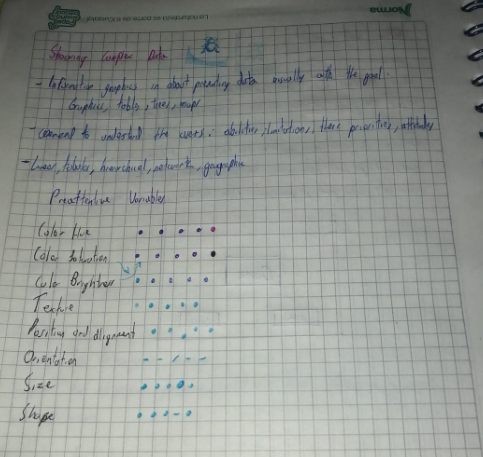 Norma
Showing Complex Data
- Information graphics is about presenting data visually with the goal.
Graphics, tabls, trees, maps
- to understand the users: abilities, limitations, their priorities, attitudes
- Linear, tabular, hierarchical, networks, geographic
Preattentive Variables
Color Hue
Color Saturation
Color Brightness
Texture
Position and alignment
Orientation
Size
Shape